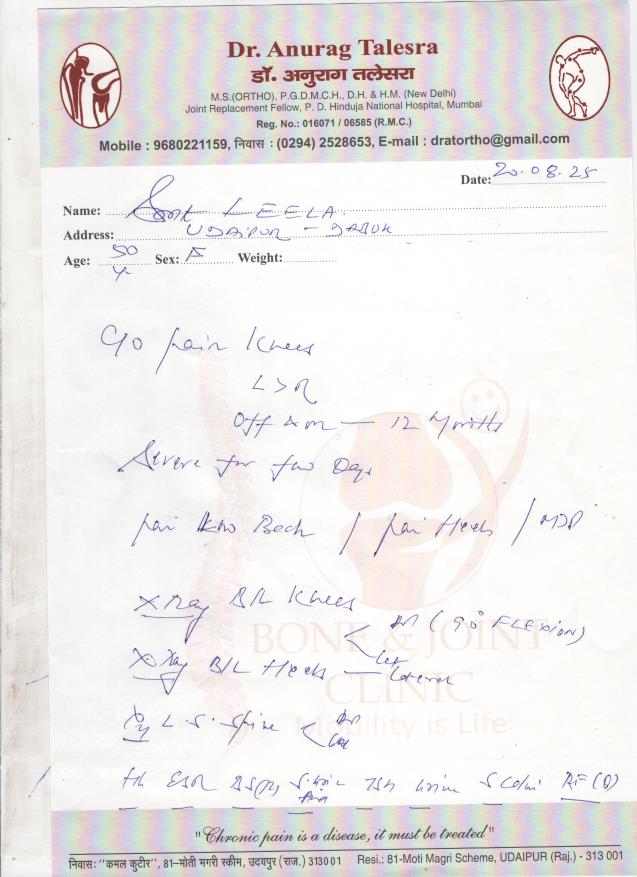 Dr. Anurag Talesra
डॉ. अनुराग तलेसरा
M.S.(ORTHO), P.G.D.M.C.H., D.H. & H.M. (New Delhi)
Joint Replacement Fellow, P. D. Hinduja National Hospital, Mumbai
Reg. No.: 016071 / 06585 (R.M.C.)
Mobile : 9680221159, निवास : (0294) 2528653, E-mail : dratortho@gmail.com
Date: 20.08.25
Name: Smt LEELA
Address: UDAIPUR - DABOK
Age: 50 y Sex: F Weight:
C/o pain Knees
L > R
Off & on — 12 Months
Severe for two Days
pain Low Back / pain Heels /
X Ray B/L Knees AP (90° FLEXION)
Lat
X Ray B/L Heels — Lateral
BONE & JOINT
CLINIC
Mobility is Life
L. S. Spine AP
Lat
Hb ESR BS(R) S. Uric Acid TSH Urine S Calci RF (Q)
"Chronic pain is a disease, it must be treated"
निवास: "कमल कुटीर", 81-मोती मगरी स्कीम, उदयपुर (राज.) 313001 Resi.: 81-Moti Magri Scheme, UDAIPUR (Raj.) - 313 001